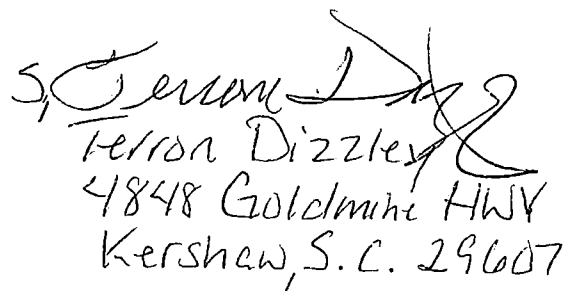 S, Terrone Diz
Terron Dizzley
4848 Goldmine HWY
Kershaw, S.C. 29607